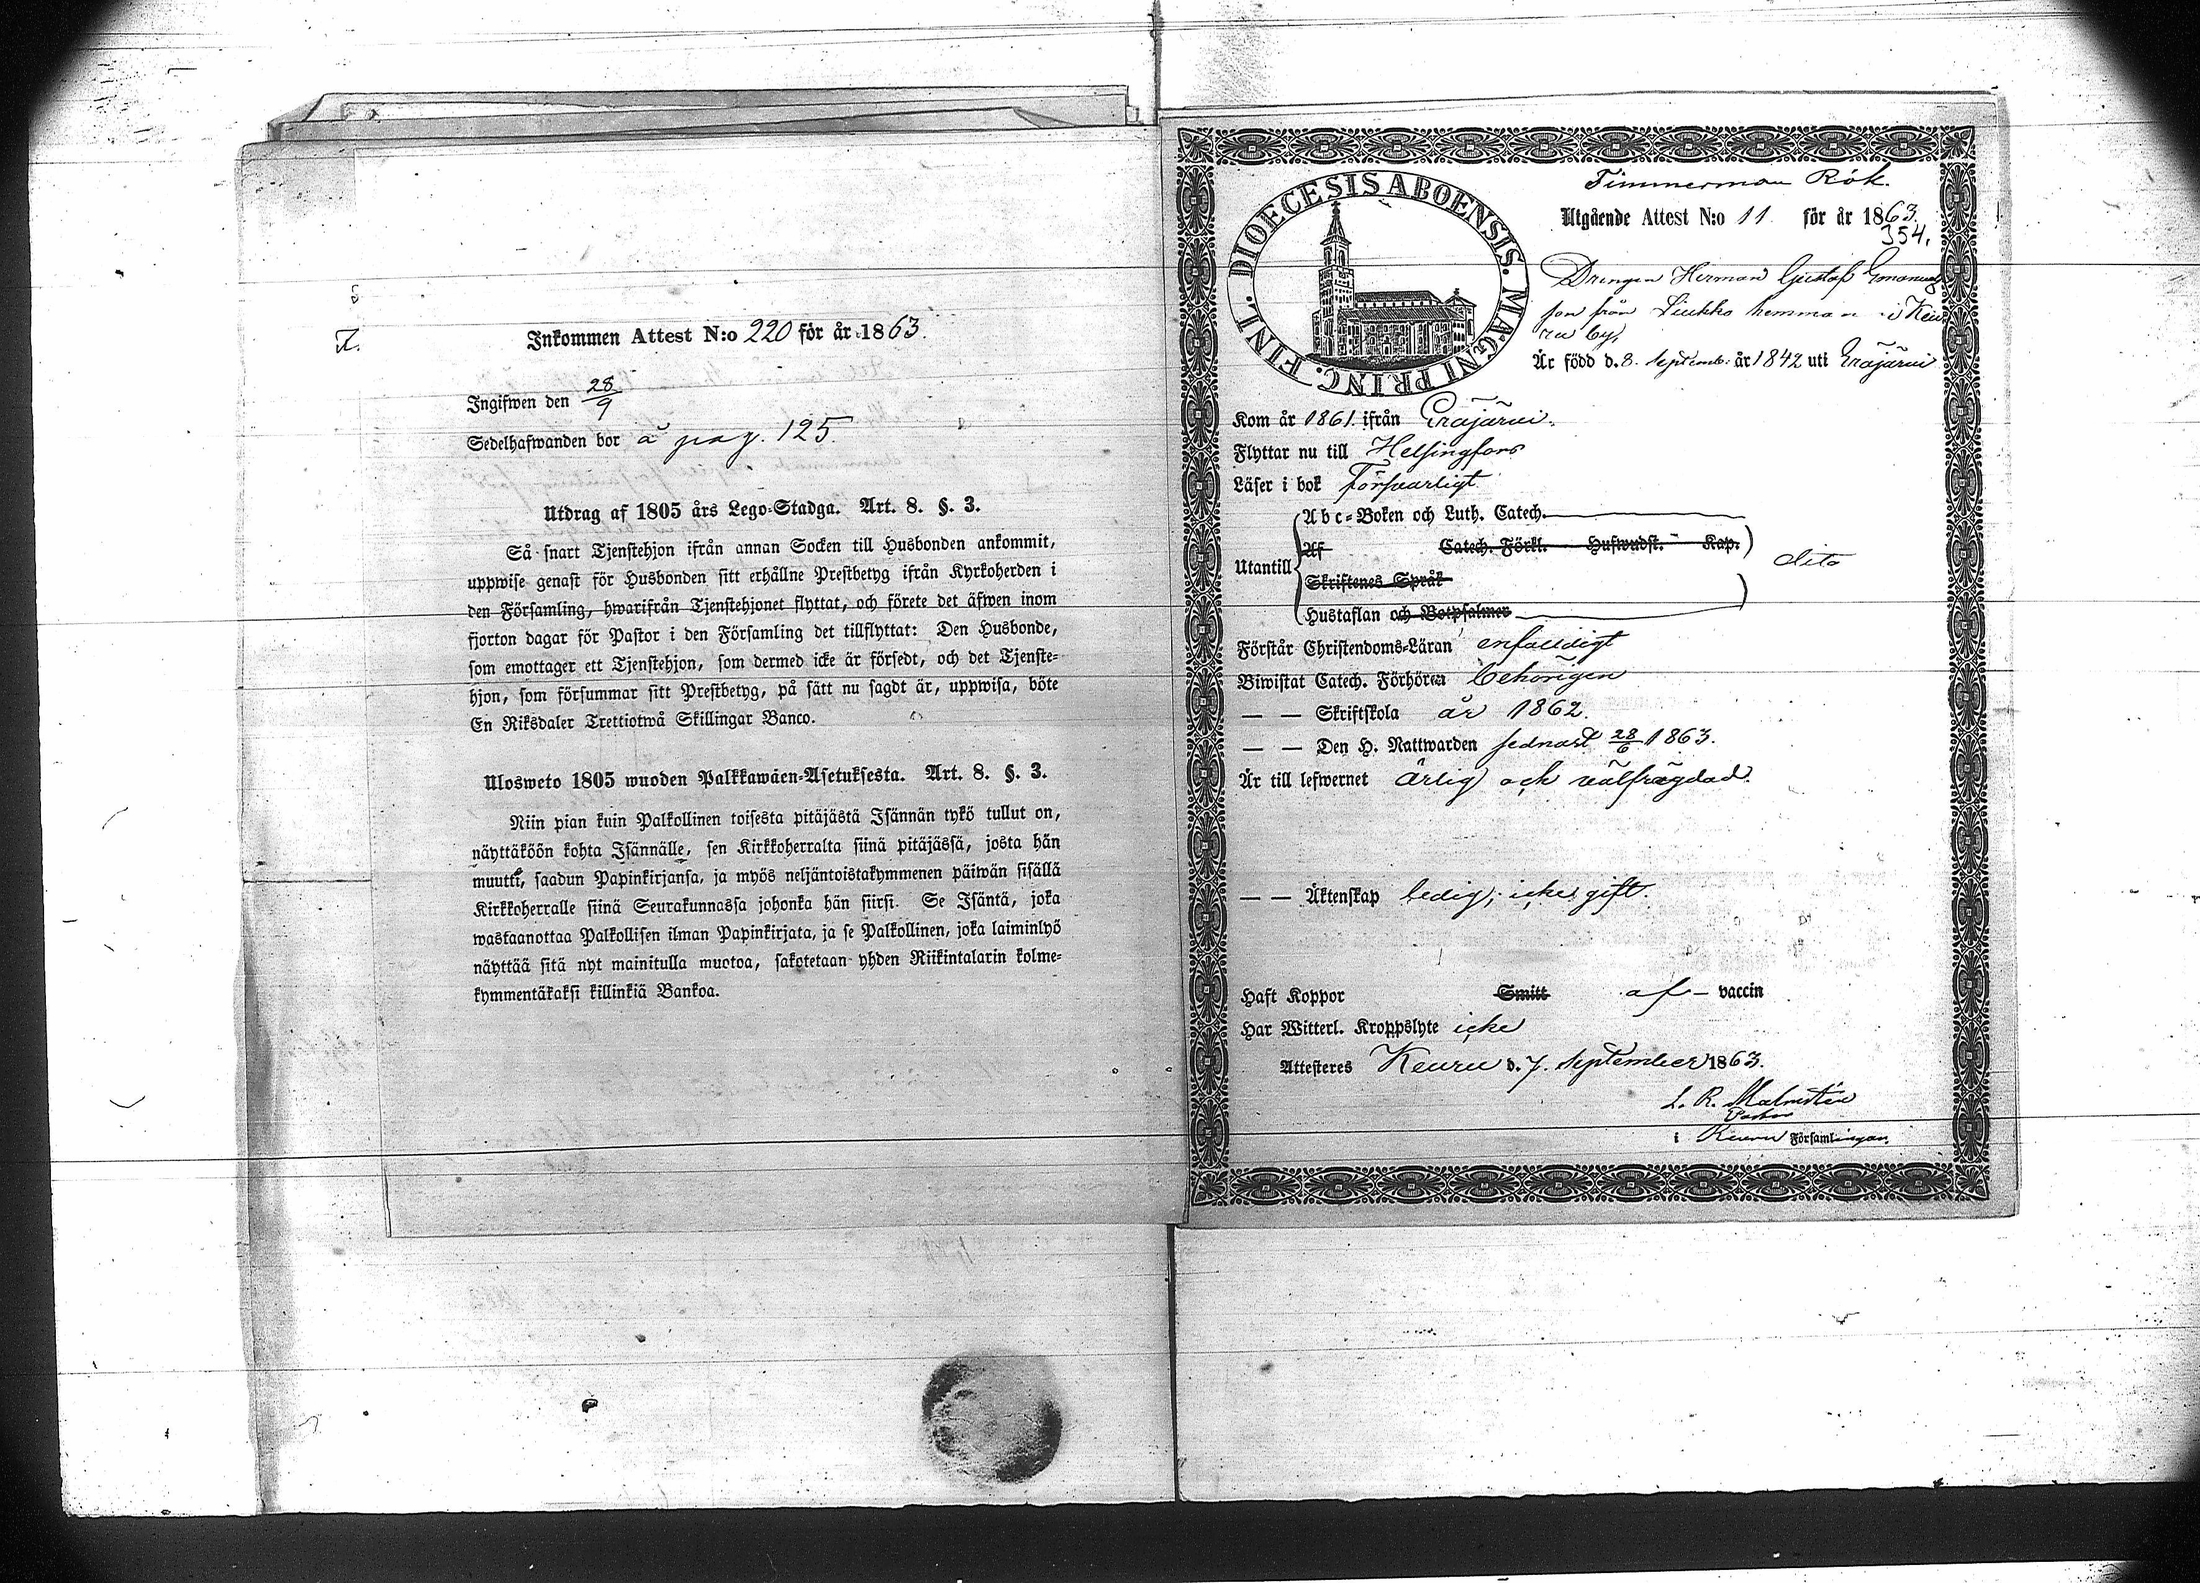 Inkommen Attest N:o 220 för år 1863.
Ingifwen den 28/9
Sedelhafwanden bor å pag. 125.
Utdrag af 1805 års Lego-Stadga. Art. 8. §. 3.
Så snart Tjenstehjon ifrån annan Socken till Husbonden ankommit,
uppwise genast för Husbonden sitt erhållne Prestbetyg ifrån Kyrkoherden i
den Församling, hwarifrån Tjenstehjonet flyttat, och förete det äfwen inom
fjorton dagar för Pastor i den Församling det tillflyttat: Den Husbonde,
som emottager ett Tjenstehjon, som dermed icke är försedt, och det Tjenste-
hjon, som försummar sitt Prestbetyg, på sätt nu sagdt är, uppwisa, böte
En Riksdaler Trettiotwå Skillingar Banco.
Ulosweto 1805 wuoden Palkkawäen-Asetuksesta. Art. 8. §. 3.
Niin pian kuin Palkollinen toisesta pitäjästä Isännän tykö tullut on,
näyttäköön kohta Isännälle, sen Kirkkoherralta siinä pitäjässä, josta hän
muutti, saadun Papinkirjansa, ja myös neljäntoistakymmenen päiwän sisällä
Kirkkoherralle siinä Seurakunnassa johonka hän siirsi. Se Isäntä, joka
wastaanottaa Palkollisen ilman Papinkirjata, ja se Palkollinen, joka laiminlyö
näyttää sitä nyt mainitulla muotoa, sakotetaan yhden Riikintalarin kolme-
kymmentäkaksi killinkiä Bankoa.
Timmerman Rök.
DIOECESIS ABOENSIS. MAGNI PRINC. FINL.
Utgående Attest N:o 11 för år 1863.
354.
Drengen Herman Gustaf Emanuels
son från Liukko hemman i Keu
ru by,
Är född d. 8. Septemb: år 1842 uti Eräjärvi
Kom år 1861. ifrån Eräjärvi.
Flyttar nu till Helsingfors
Läser i bok försvarligt
Utantill
Abc-Boken och Luth. Catech.
Af Catech. Förkl. Hufwudst. Kap.
dito
Skriftenes Språk
Hustaflan och Botpsalmer
Förstår Christendoms-Läran enfaldigt
Biwistat Catech. Förhören behörigen
— — Skriftskola år 1862.
— — Den H. Nattwarden sednast 28/6 1863.
Är till lefwernet ärlig och välfrägdad.
— — Äktenskap ledig; icke gift.
Haft Koppor Smitt af – vaccin
Har Witterl. Kroppslyte icke
Attesteres Keuru d. 7. September 1863.
L. R. Malmstén
Pastor
i Keuru Församlingar.